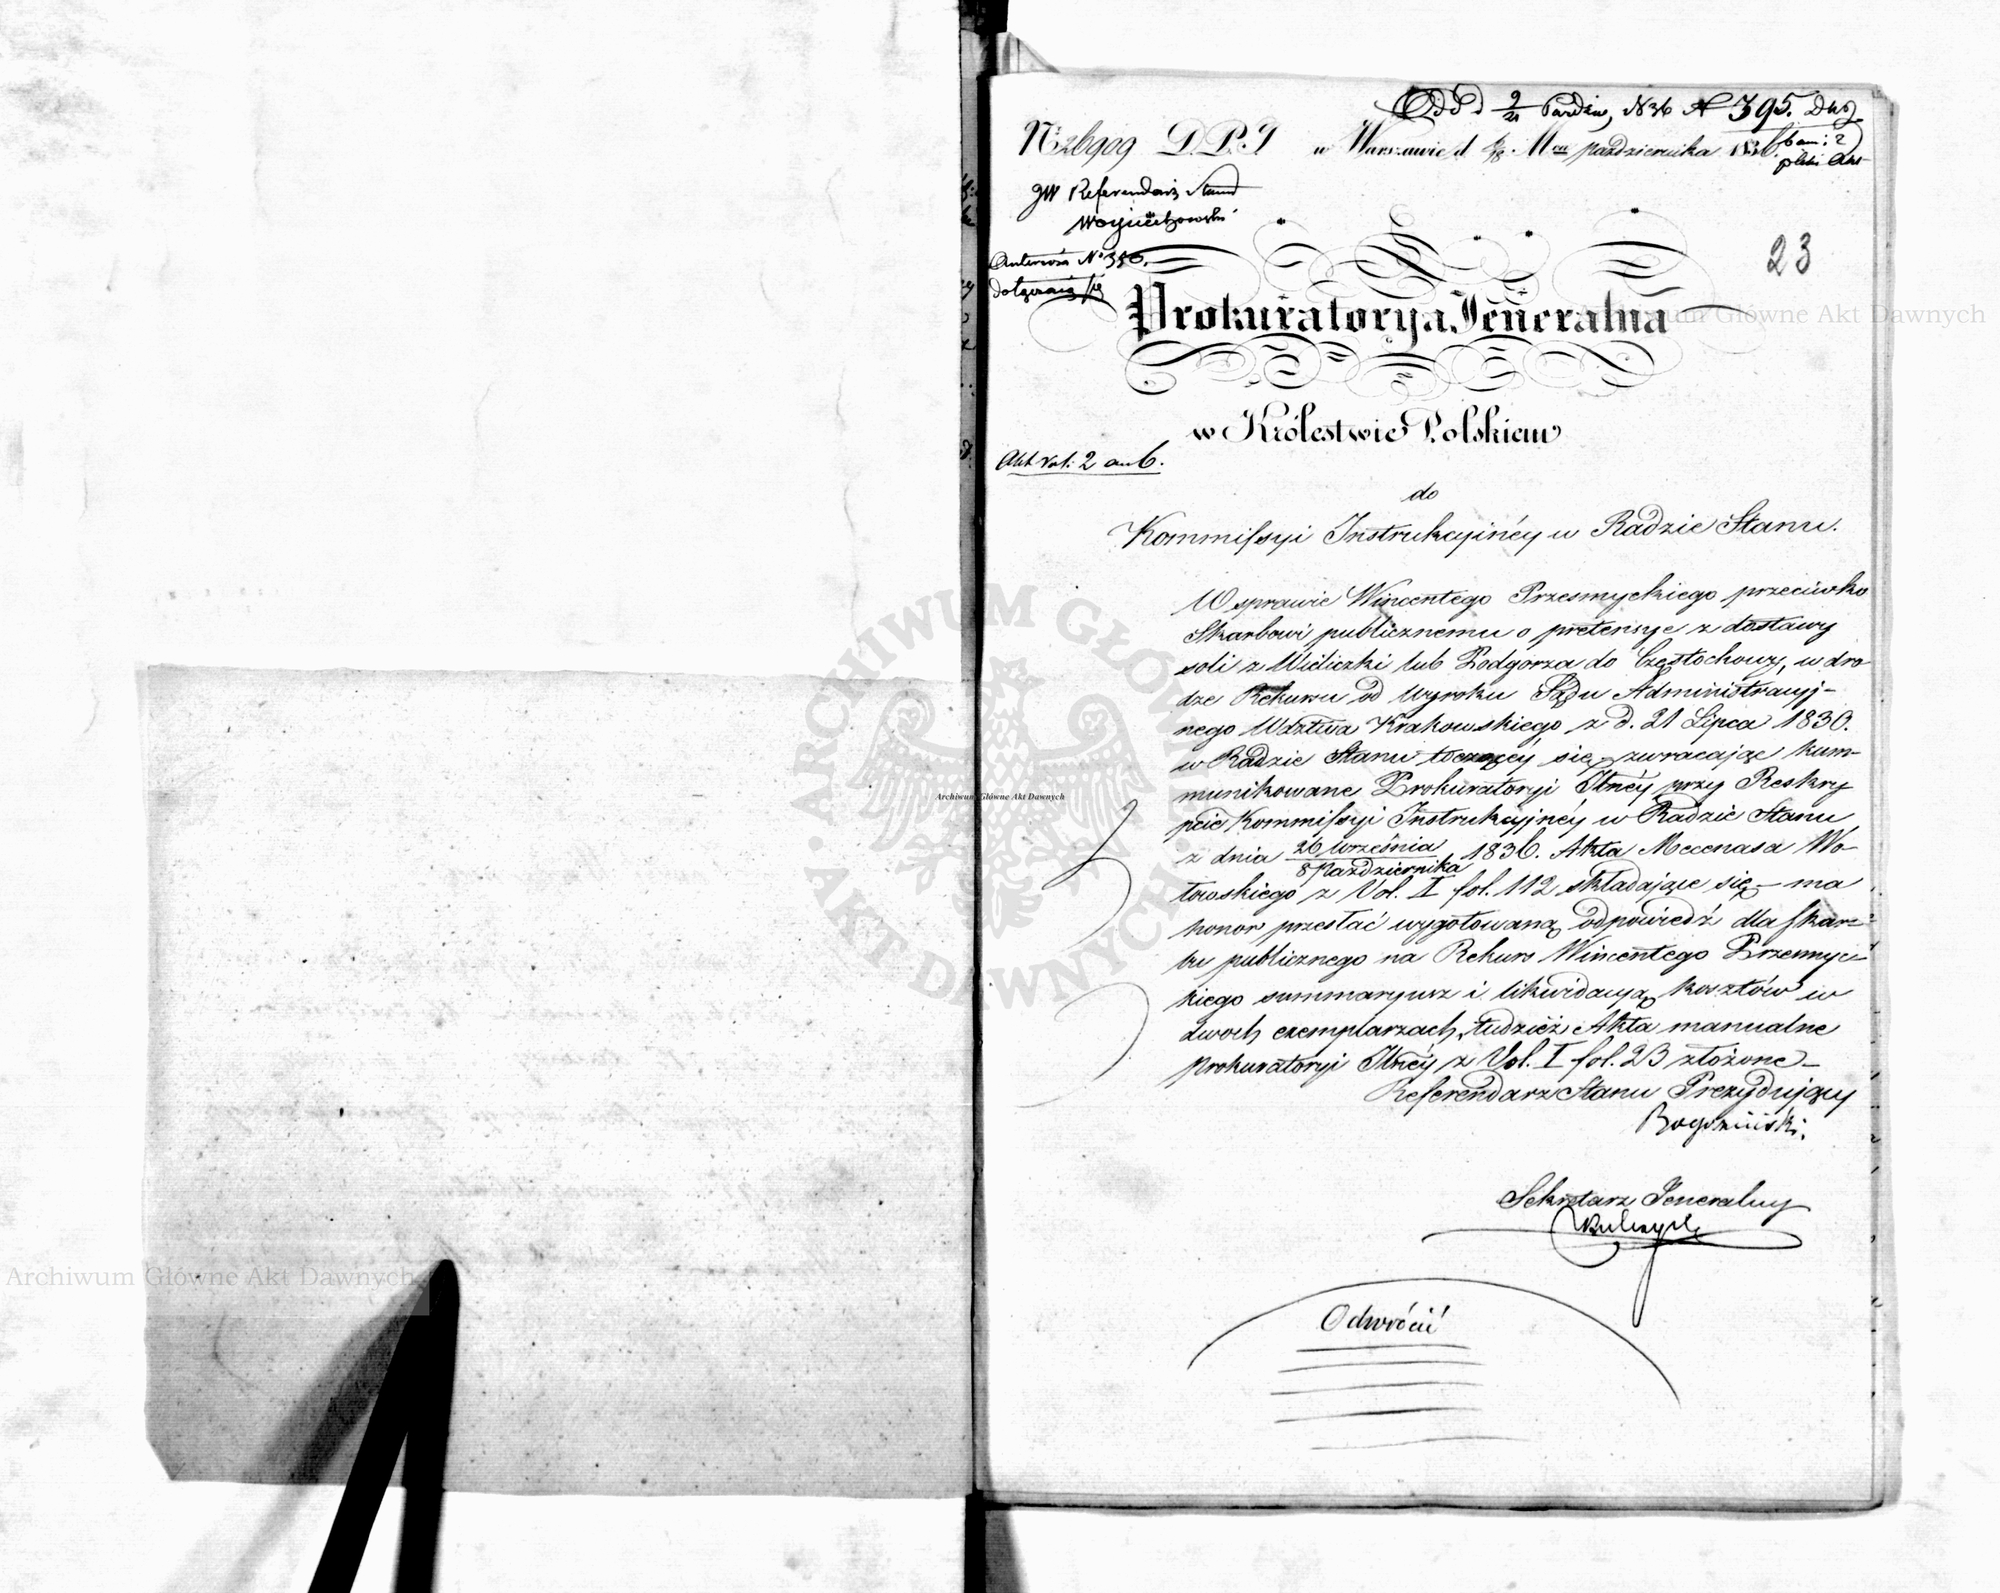 d 9/21 Paździer, 836 N 395.
N: 26909 D. P. J w Warszawie d 6/18. Mca października 1836.
JW Referendarz Stanu
Wojciechowski
N° 356.
dołączając
23
Prokuratorya Jeneralna
w Królestwie Polskiem
Akt Vol: 2 an 6.
do
Kommissyi Instrukcyinéy w Radzie Stanu.
W sprawie Wincentego Przesmyckiego przeciwko
Skarbowi publicznemu o pretensye z dostawy
soli z Wieliczki lub Podgorza do Częstochowy, w dro
dze Rekursu od wyroku Sądu Administracyj-
nego Wdztwa Krakowskiego z d. 21 Lipca 1830.
w Radzie Stanu toczącéy się – zwracając kom-
munikowane Prokuratoryi Jlnéy przy Reskry
pcie Kommissyi Instrukcyjnéy w Radzie Stanu
z dnia 26 Września / 8 Października 1836. Akta Mecenasa Wo-
łowskiego z Vol. I fol. 112 składające się – ma
honor przesłać wygotowaną odpowiedź dla Skar-
bu publicznego na Rekurs Wincentego Przesmyc-
kiego summaryusz i likwidacyą kosztów w
dwoch exemplarzach, tudzież Akta manualne
Prokuratoryi Jlnéy z Vol. I fol. 23 złożone –
Referendarz Stanu Prezydujący
Sekretarz Jeneralny
Odwrócić
Archiwum Główne Akt Dawnych
ARCHIWUM GŁÓWNE AKT DAWNYCH
Archiwum Główne Akt Dawnych
Archiwum Główne Akt Dawnych